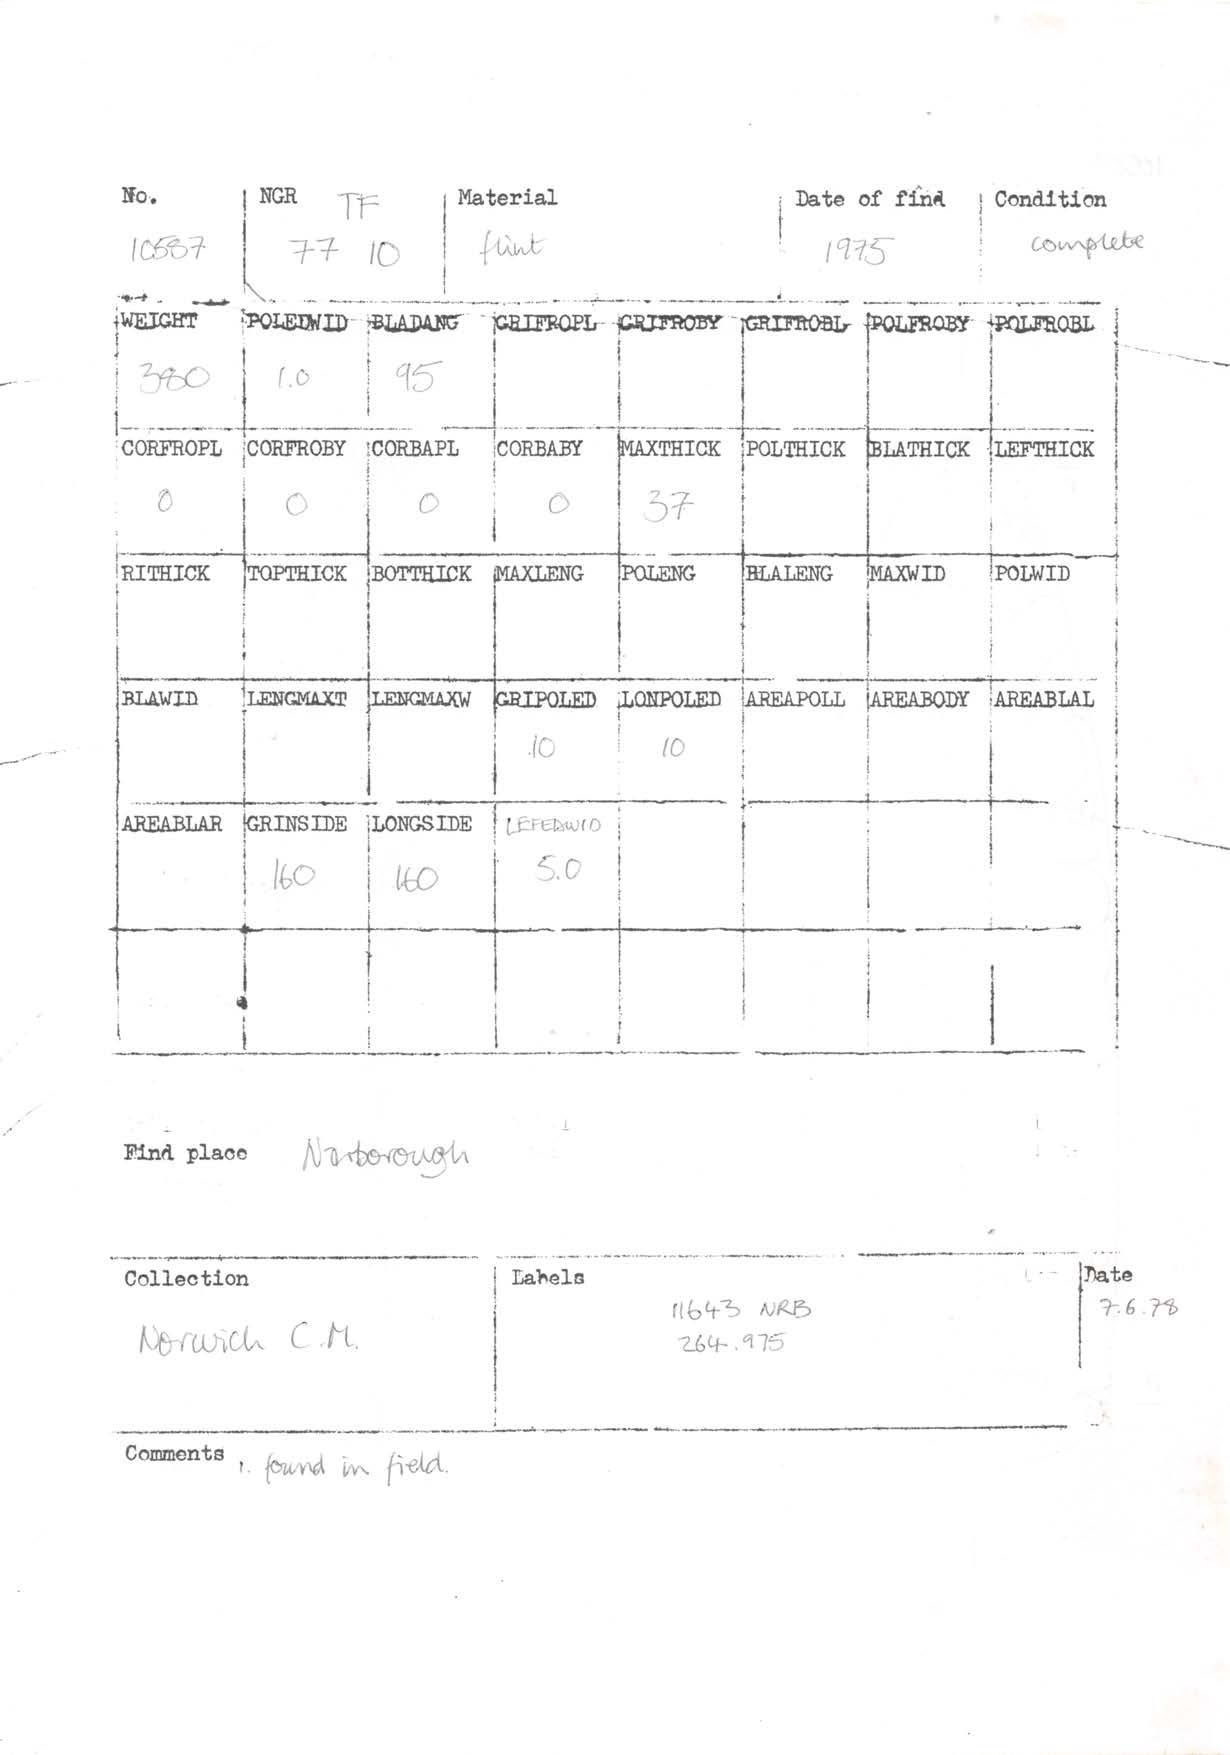 No. NGR TF Material Date of find Condition
10587 77 10 flint 1975 complete
WEIGHT POLEDWID BLADANG GRIFROPL GRIFROBY GRIFROBL POLFROBY POLFROBL
380 1.0 95
CORFROPL CORFROBY CORBAPL CORBABY MAXTHICK POLTHICK BLATHICK LEFTHICK
0 0 0 0 37
RITHICK TOPTHICK BOTTHICK MAXLENG POLENG BLALENG MAXWID POLWID
BLAWID LENGMAXT LENGMAXW GRIPOLED LONPOLED AREAPOLL AREABODY AREABLAL
10 10
AREABLAR GRINSIDE LONGSIDE LEFEDWID
160 160 5.0
Find place Narborough
Collection Labels Date
11643 NRB 7.6.78
Norwich C.M. 264.975
Comments 1. found in field.